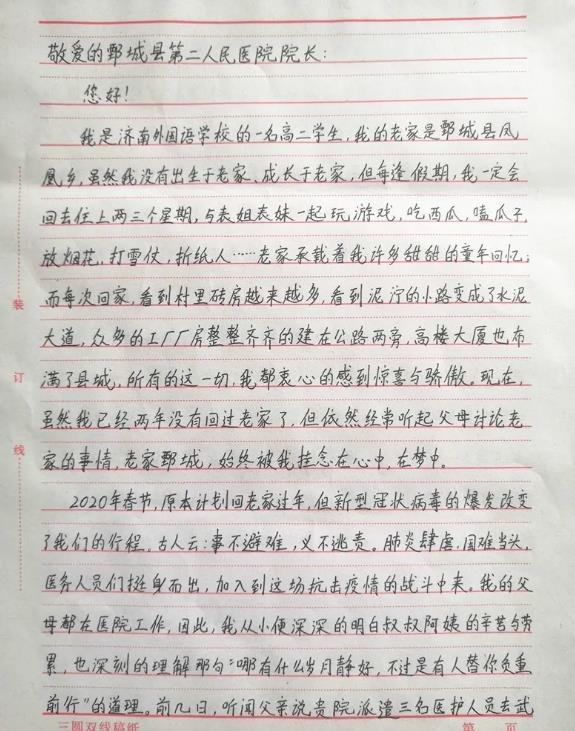 敬爱的鄄城县第二人民医院院长:
您好!
我是济南外国语学校的一名高二学生,我的老家是鄄城县凤
凰乡,虽然我没有出生于老家、成长于老家,但每逢假期,我一定会
回去住上两三个星期,与表姐表妹一起玩游戏,吃西瓜,嗑瓜子,
放烟花,打雪仗,折纸人……老家承载着我许多甜甜的童年回忆;
而每次回家,看到村里砖房越来越多,看到泥泞的小路变成了水泥
大道,众多的工厂厂房整整齐齐的建在公路两旁,高楼大厦也布
满了县城,所有的这一切,我都衷心的感到惊喜与骄傲。现在,
虽然我已经两年没有回过老家了,但依然经常听起父母讨论老
家的事情,老家鄄城,始终被我挂念在心中,在梦中。
2020年春节,原本计划回老家过年,但新型冠状病毒的爆发改变
了我们的行程,古人云:事不避难,义不逃责。肺炎肆虐,国难当头,
医务人员们挺身而出,加入到这场抗击疫情的战斗中来。我的父
母都在医院工作,因此,我从小便深深的明白叔叔阿姨的辛苦与劳
累,也深刻的理解那句:“哪有什么岁月静好,不过是有人替你负重
前行”的道理。前几日,听闻父亲说贵院派遣三名医护人员去武
装
订
线
三圆双线稿纸
第 页